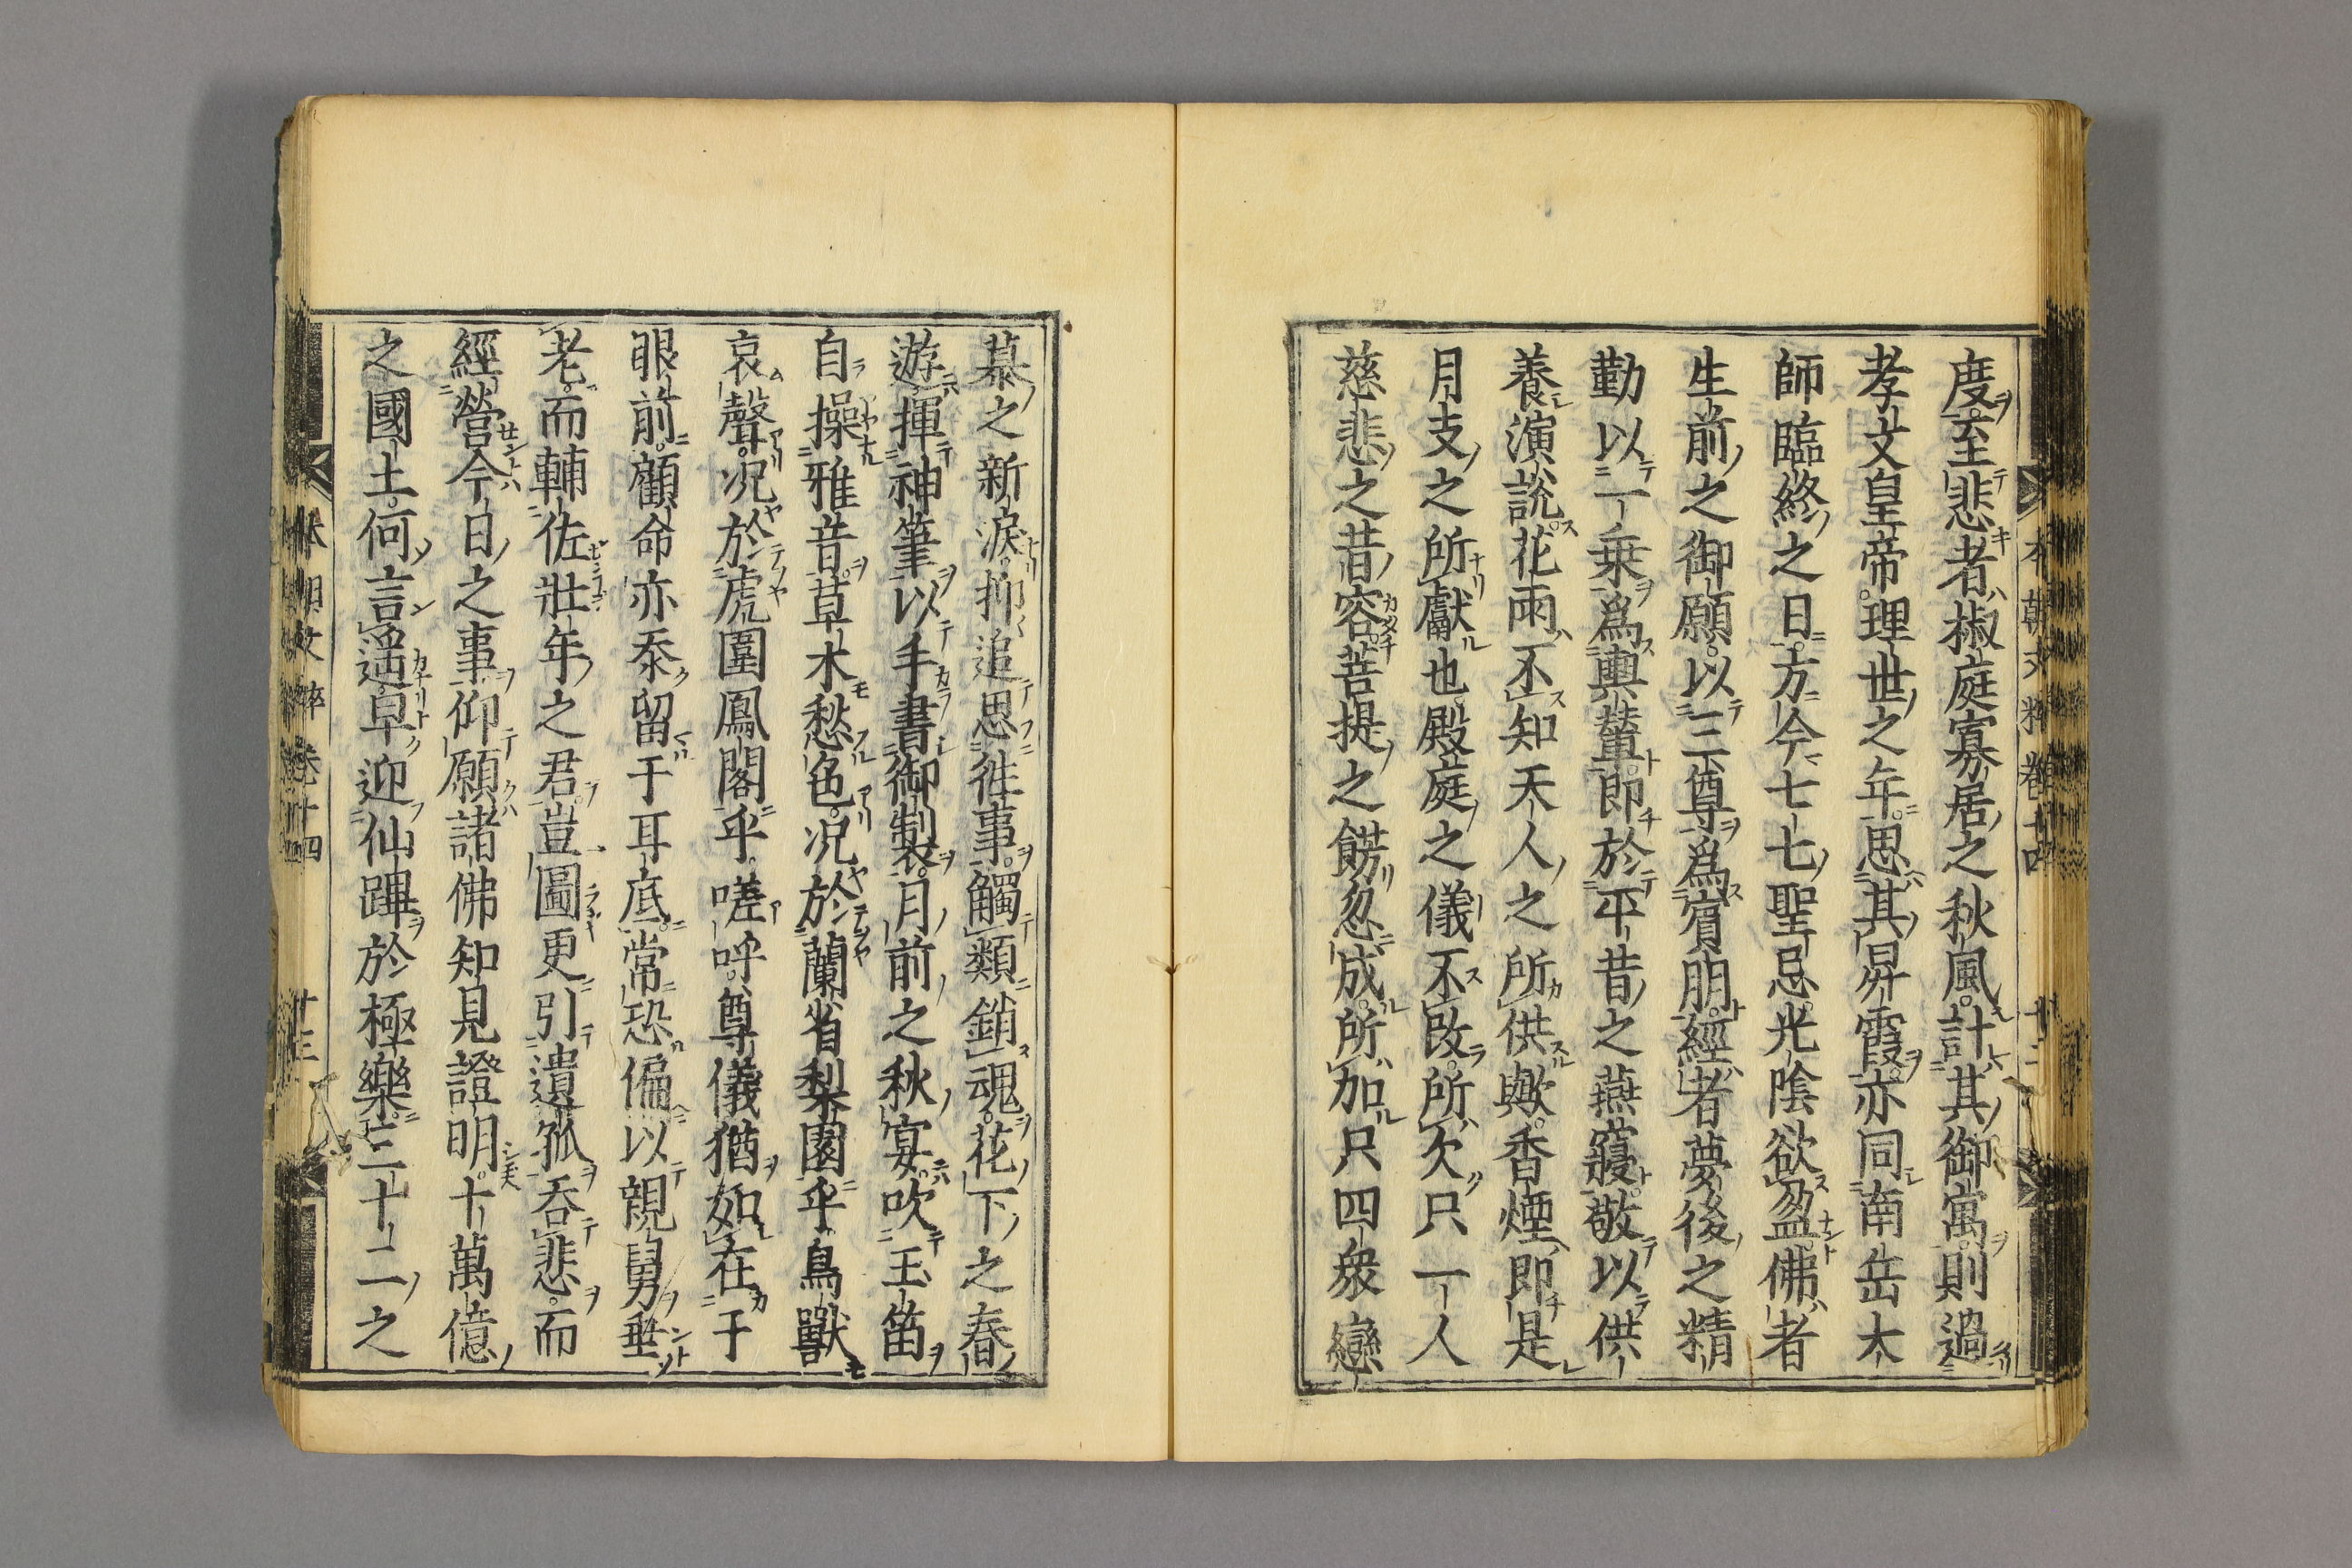 度至悲者椒庭寡居之秋風計其御寓則過
孝文皇帝理世之年思其昇霞亦同南岳大
師臨終之日方今七七聖忌光陰欲盈佛者
生前之御願以三尊爲賓朋經者夢後之精
勤以一乗爲輿輦即於平昔之燕寢敬以供
養演說花雨不知天人之所供歟香煙即是
月支之所獻也殿庭之儀不改所欠只一人
慈悲之昔容菩提之餝忽成所加只四衆戀
慕之新淚抑追思徃事觸類銷魂花下之春
遊揮神筆以手書御製月前之秋宴吹玉笛
自操雅音草木愁色况於蘭省梨園乎鳥獸
哀聲况於虎圍鳳閣乎嗟呼尊儀猶如在于
眼前顧命亦忝留于耳底常恐偏以親舅垂
老而輔佐壯年之君豈圖更引遺孤吞悲而
經營今日之事仰願諸佛知見證明十萬億
之國土何言遥早迎仙蹕於極樂三十二之
本朝文粹卷十四 廿三